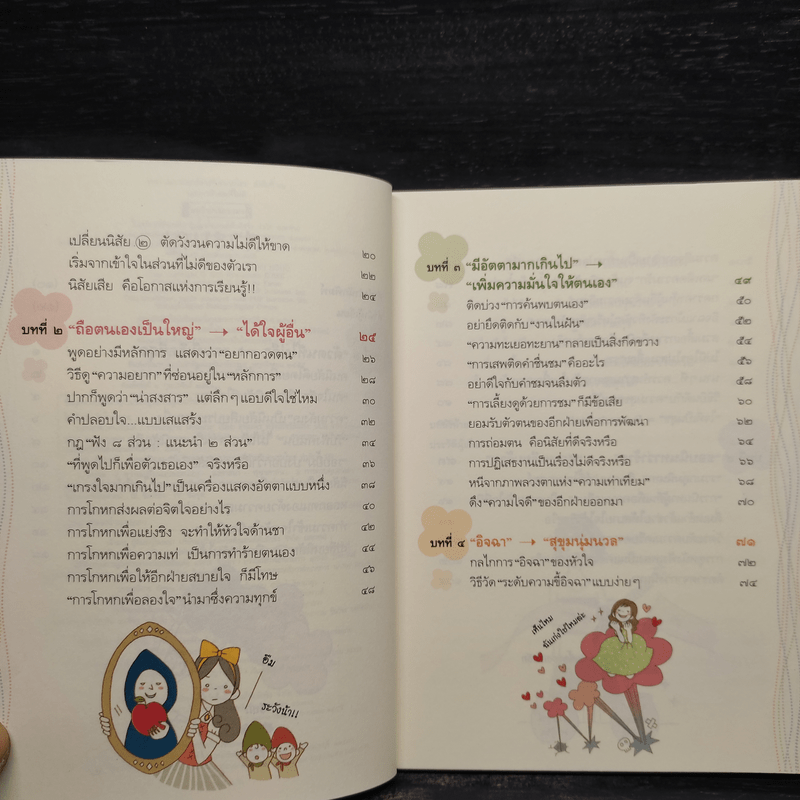 เปลี่ยนนิสัย ๒ ตัดวังวนความไม่ดีให้ขาด ๒๐
เริ่มจากเข้าใจในส่วนที่ไม่ดีของตัวเรา ๒๒
นิสัยเสีย คือโอกาสแห่งการเรียนรู้!! ๒๔
บทที่ ๒ “ถือตนเองเป็นใหญ่” → “ได้ใจผู้อื่น” ๒๕
พูดอย่างมีหลักการ แสดงว่า “อยากอวดตน” ๒๖
วิธีดู “ความอยาก” ที่ซ่อนอยู่ใน “หลักการ” ๒๘
ปากก็พูดว่า “น่าสงสาร” แต่ลึกๆ แอบดีใจใช่ไหม ๓๐
คำปลอบใจ...แบบเสแสร้ง ๓๒
กฎ “ฟัง ๘ ส่วน : แนะนำ ๒ ส่วน” ๓๔
“ที่พูดไปก็เพื่อตัวเธอเอง” จริงหรือ ๓๖
“เกรงใจมากเกินไป” เป็นเครื่องแสดงอัตตาแบบหนึ่ง ๓๘
การโกหกส่งผลต่อจิตใจอย่างไร ๔๐
การโกหกเพื่อแย่งชิง จะทำให้หัวใจด้านชา ๔๒
การโกหกเพื่อความเท่ เป็นการทำร้ายตนเอง ๔๔
การโกหกเพื่อให้อีกฝ่ายสบายใจ ก็มีโทษ ๔๖
“การโกหกเพื่อลองใจ” นำมาซึ่งความทุกข์ ๔๘
อึ๊ม
ระวังน้า!!
บทที่ ๓ “มีอัตตามากเกินไป” →
“เพิ่มความมั่นใจให้ตนเอง” ๔๙
ติดบ่วง “การค้นพบตนเอง” ๕๐
อย่ายึดติดกับ “งานในฝัน” ๕๒
“ความทะเยอทะยาน” กลายเป็นสิ่งกีดขวาง ๕๔
“การเสพติดคำชื่นชม” คืออะไร ๕๖
อย่าดีใจกับคำชมจนลืมตัว ๕๘
“การเลี้ยงดูด้วยการชม” ก็มีข้อเสีย ๖๐
ยอมรับตัวตนของอีกฝ่ายเพื่อการพัฒนา ๖๒
การถ่อมตน คือนิสัยที่ดีจริงหรือ ๖๔
การปฏิเสธงานเป็นเรื่องไม่ดีจริงหรือ ๖๖
หนีจากภาพลวงตาแห่ง “ความเท่าเทียม” ๖๘
ดึง “ความใจดี” ของอีกฝ่ายออกมา ๗๐
บทที่ ๔ “อิจฉา” → “สุขุมนุ่มนวล” ๗๑
กลไกการ “อิจฉา” ของหัวใจ ๗๒
วิธีวัด “ระดับความขี้อิจฉา” แบบง่ายๆ ๗๔
เห็นไหม
ฉันเก่งใช่ไหมล่ะ